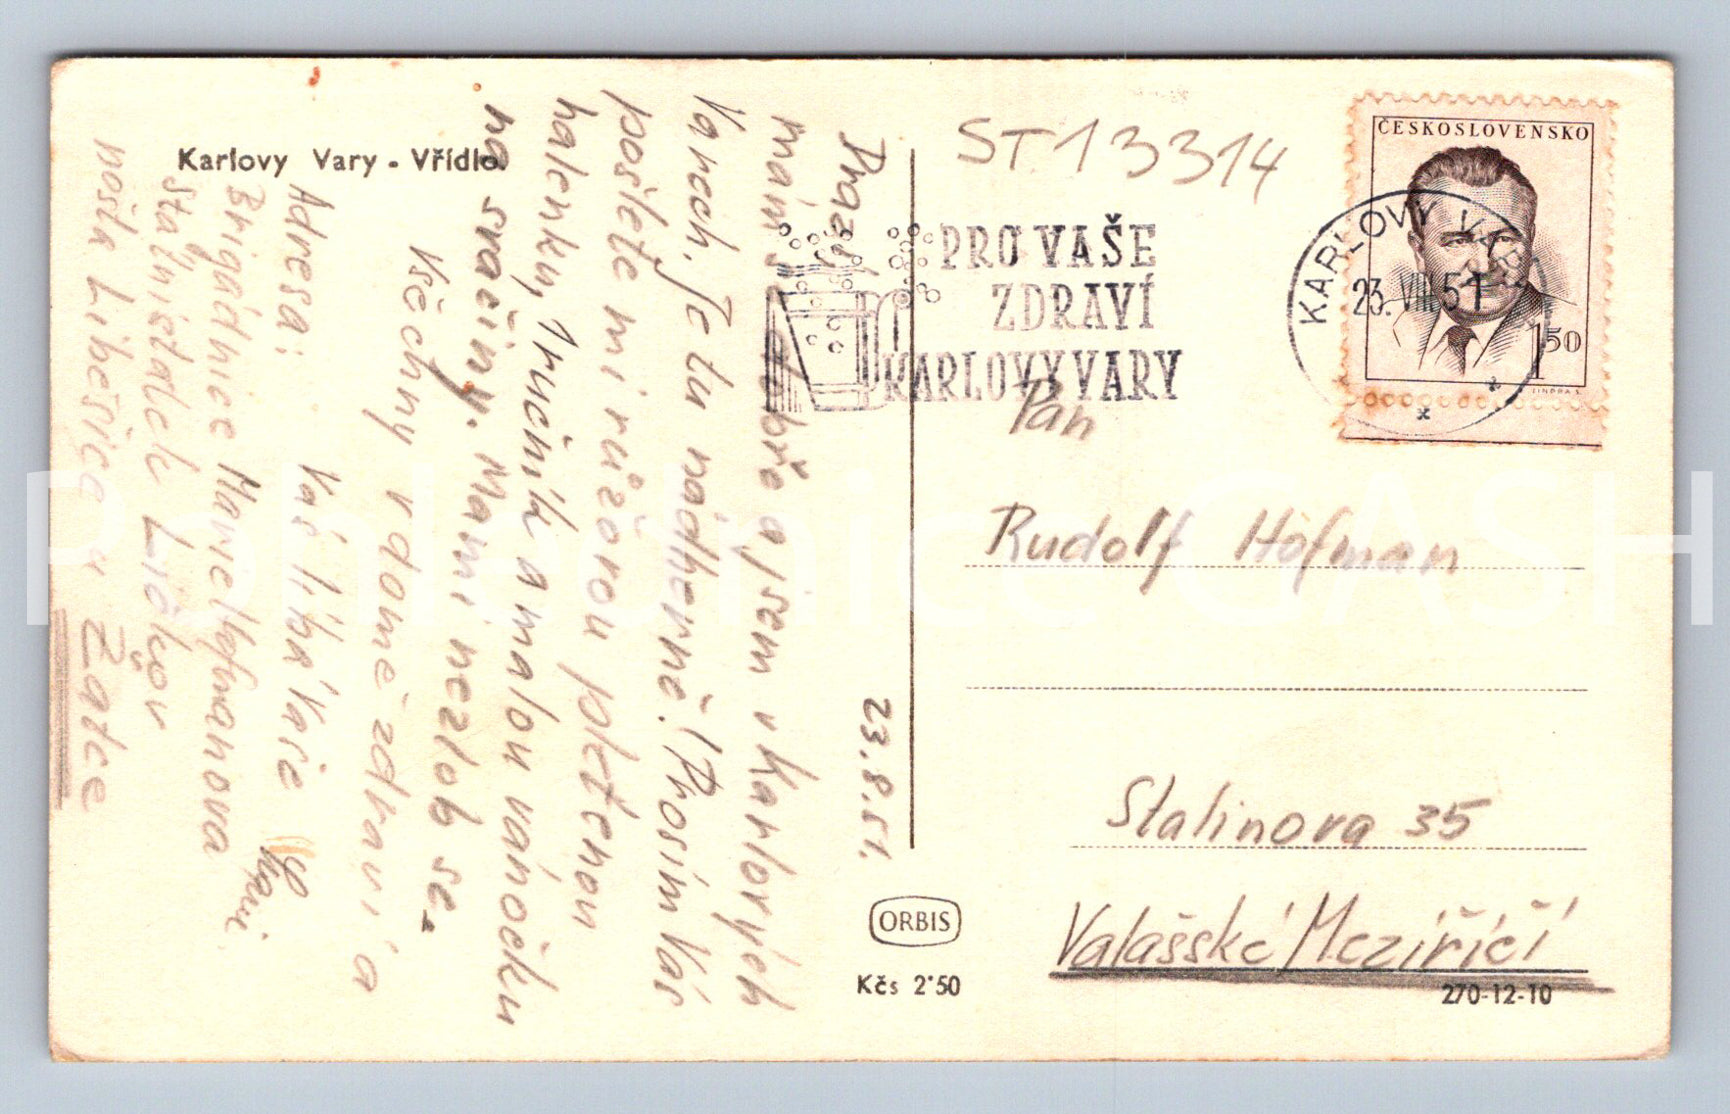 Karlovy Vary - Vřídlo.
23.8.51.
Drazí,
mám dobře a jsem v Karlových
Varech. Je tu nádherně! Prosím Vás
pošlete mi růžovou pletenou
halenku, 1 ručník a malou vánočku
na svačiny. Mami nezlob se.
Všechny v domě zdraví a
Vaš líbá Vaše
Adresa:
Brigádnice Marie Hofmanova
Stat. statek Ličkov
pošta Liběšice u Žatce
ST13314
PRO VAŠE
ZDRAVÍ
KARLOVY VARY
ČESKOSLOVENSKO
KARLOVY VARY
23. VIII 51
1 50
Pan
Rudolf Hofman
Stalinova 35
Valašské Meziříčí
ORBIS
Kčs 2˙50
270-12-10
Pohlednice GASH